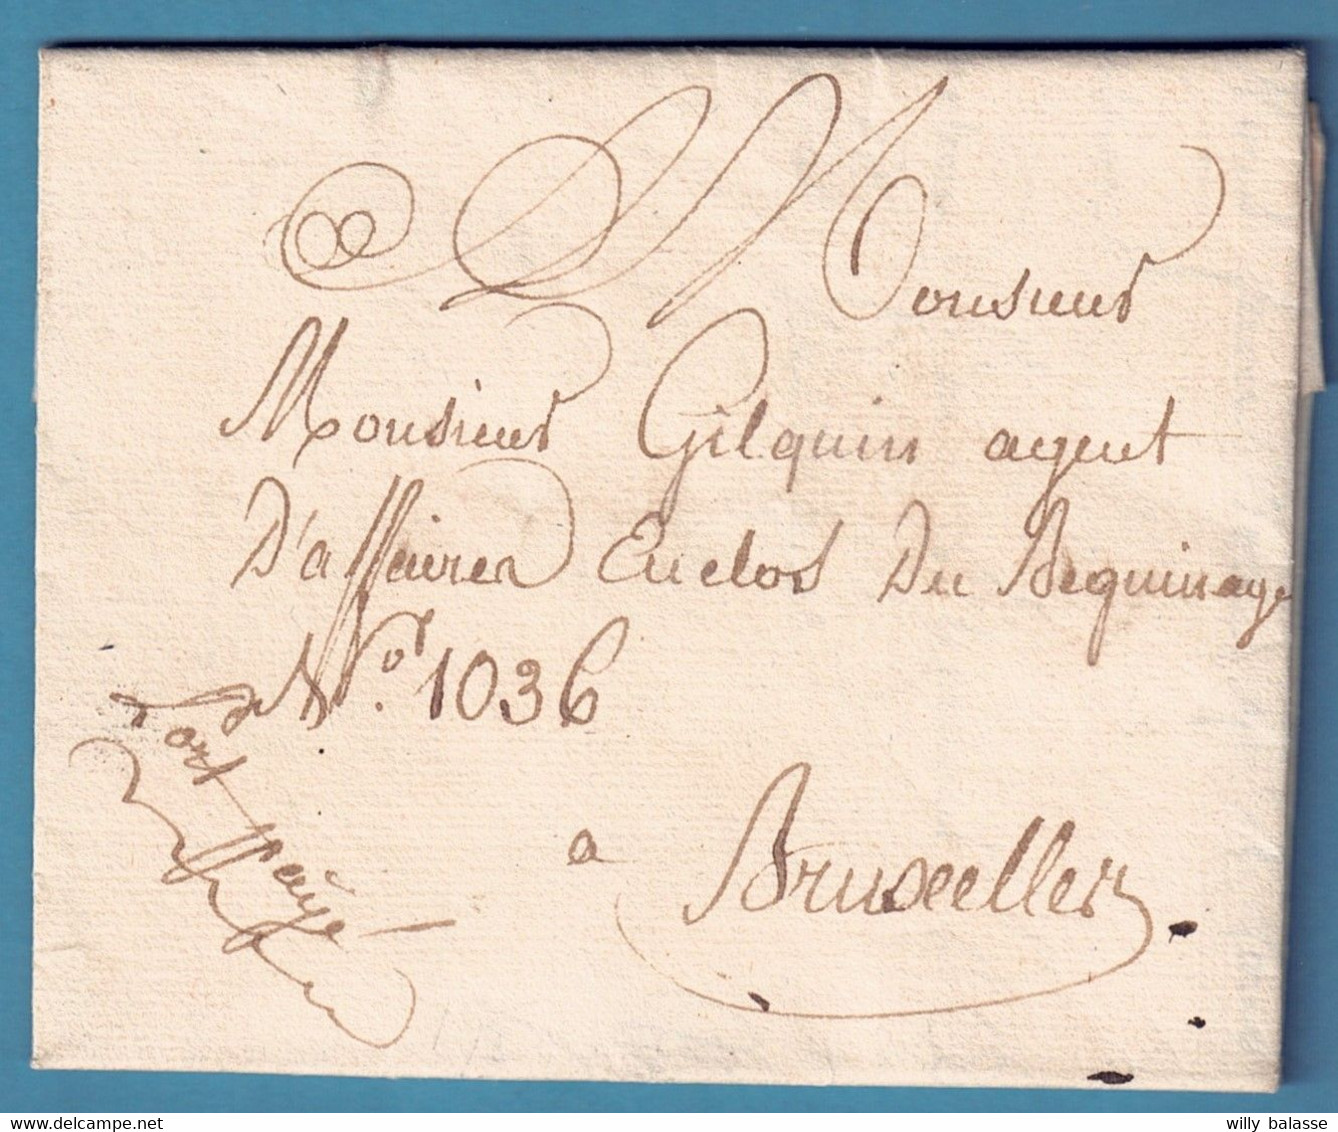 Monsieur
Monsieur Gilquin agent
D'affaires Enclos Du Beguinage
Nº. 1036
Port payé
a Bruxelles
willy balasse